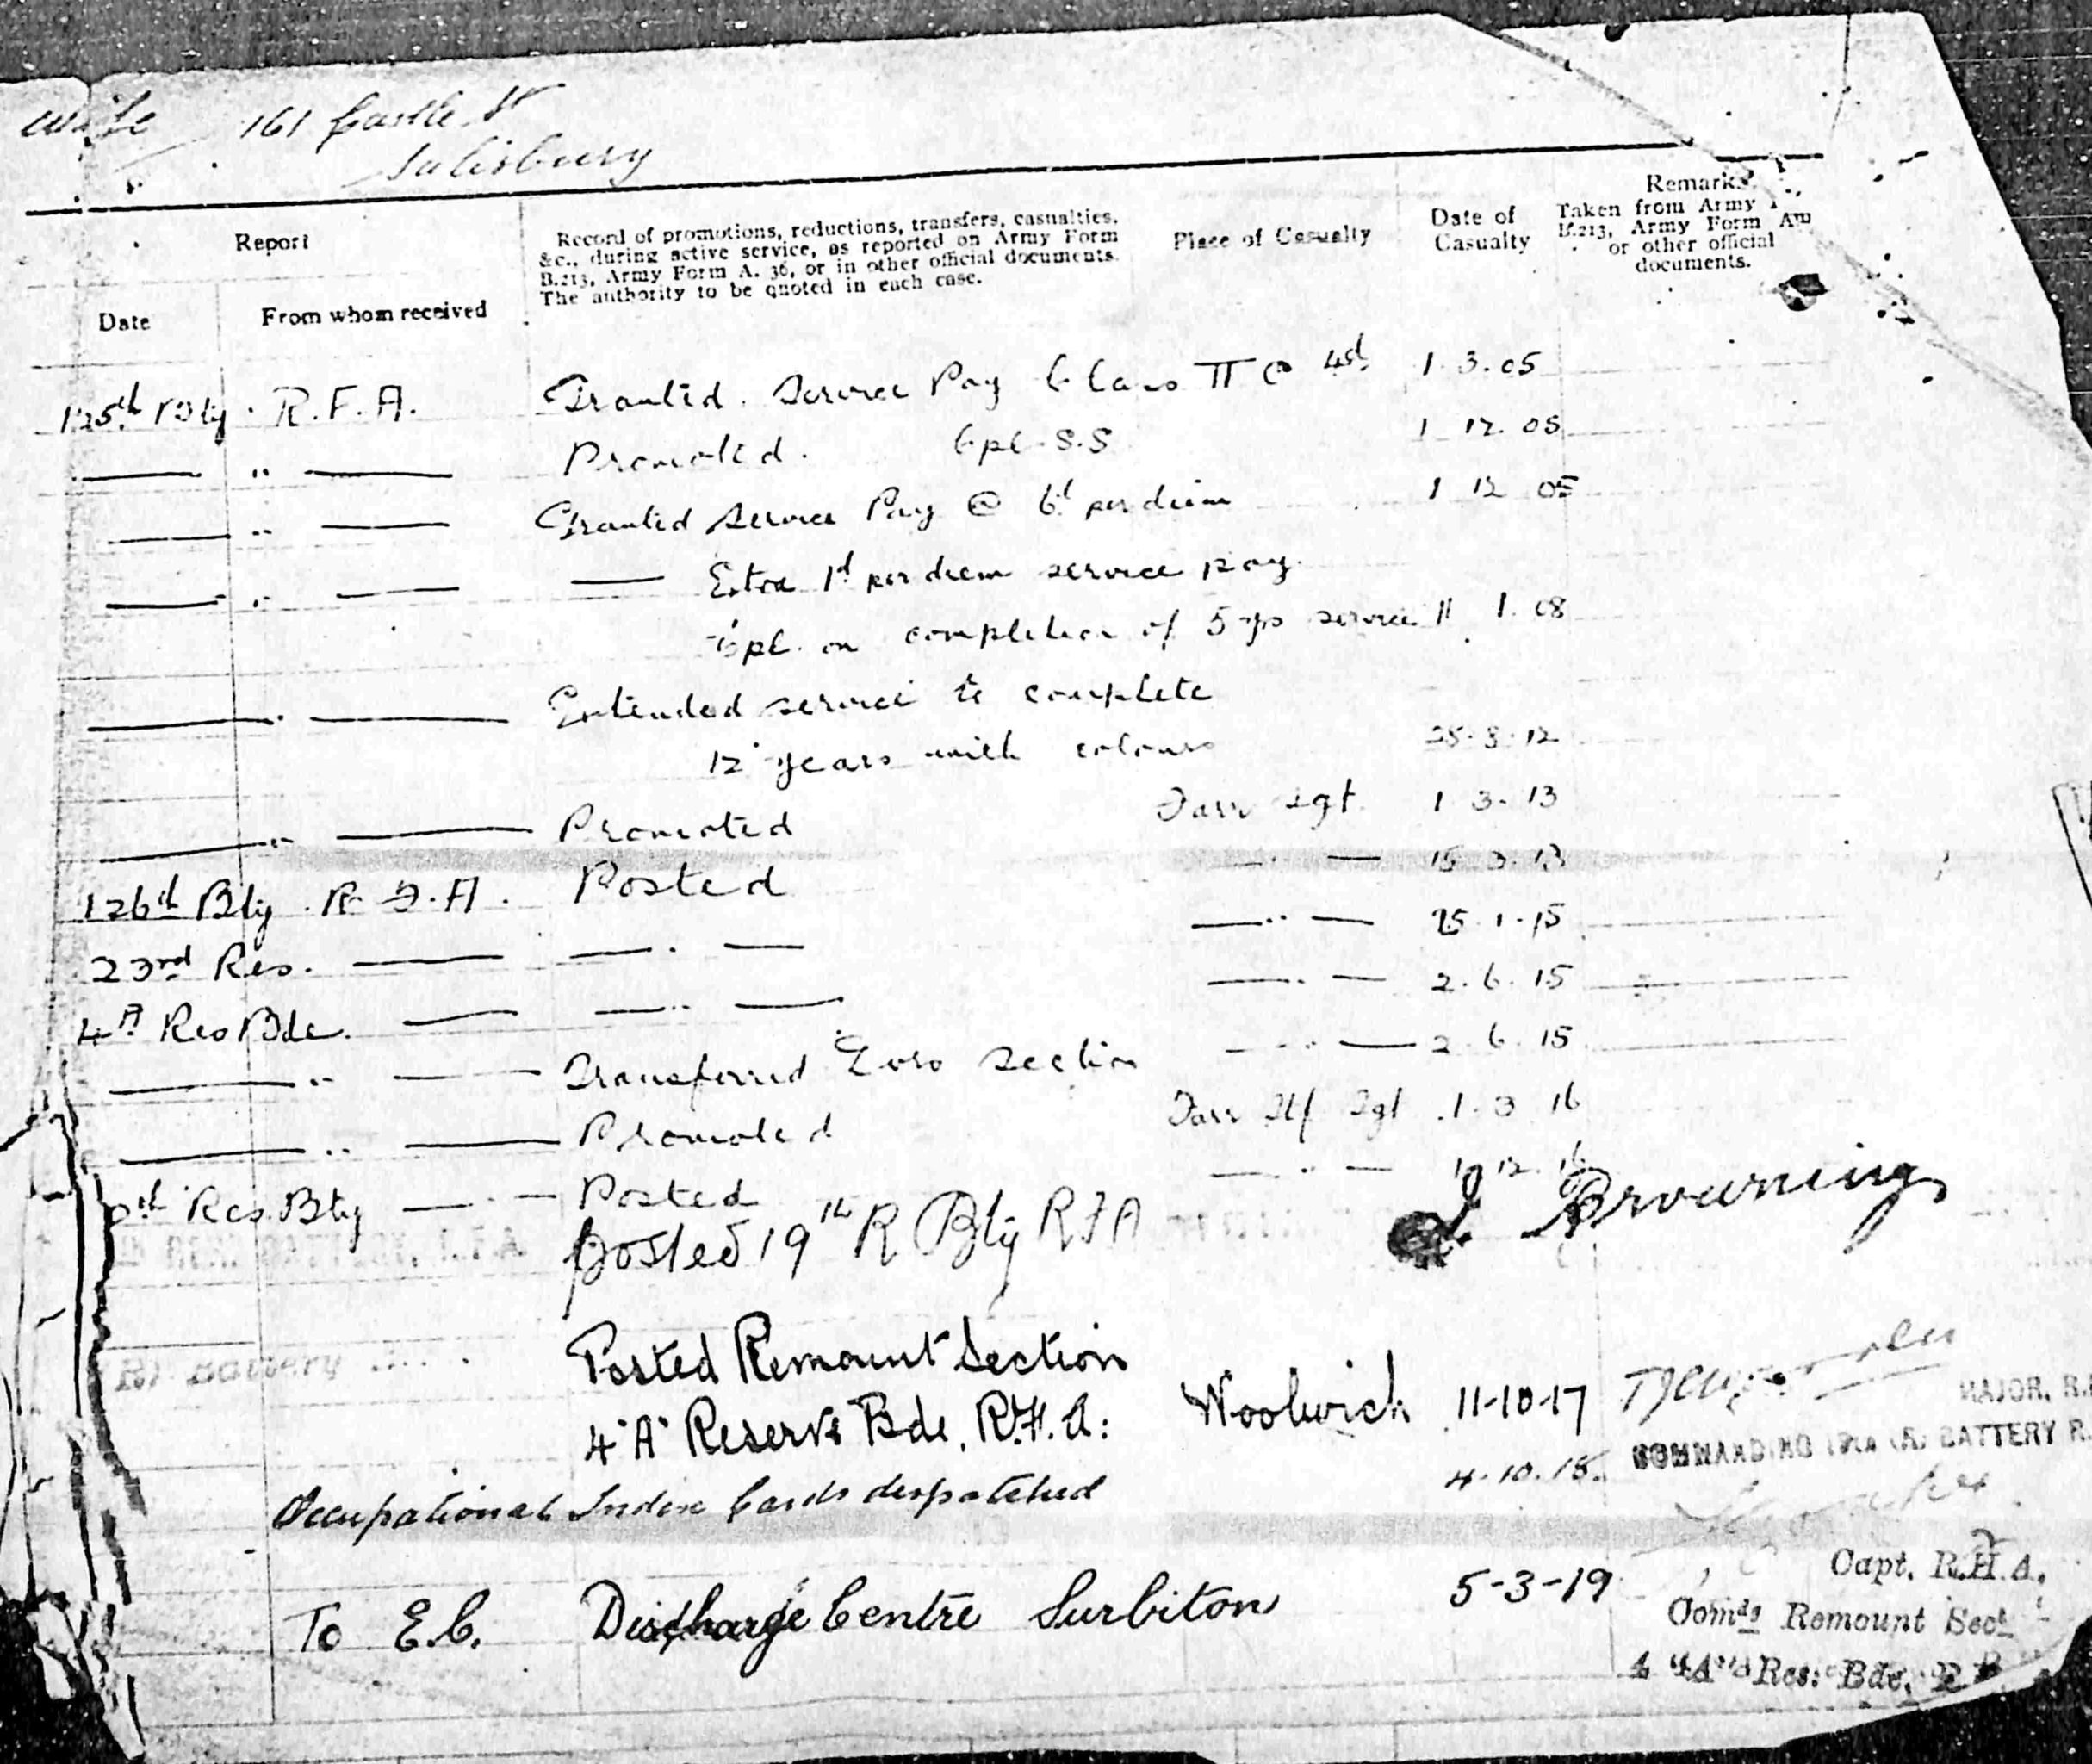 wife 161 Castle St
Salisbury
Report
Record of promotions, reductions, transfers, casualties,
&c., during active service, as reported on Army Form
B.213, Army Form A. 36, or in other official documents.
The authority to be quoted in each case.
Place of Casualty
Date of
Casualty
Remarks.
Taken from Army
B.213, Army Form
or other official
documents.
Date
From whom received
125th Bty. R.F.A. Granted Service Pay Class II @ 4d 1.3.05
— " — Promoted. Cpl S.S 1 12. 05
— " — Granted Service Pay @ 6d per diem 1 12 05
— " — — Extra 1d per diem service pay
Cpl. on completion of 5 yrs service 11 1. 08
— " — Extended service to complete
12 years with colours 28.8.12
— " — Promoted Farr Sgt. 1 3. 13
126th Bty. R.F.A. Posted — " — 15 3. 13
23rd Res. — — " — — " — 25.1.15
4A Res Bde. — — " — — " — 2.6.15
— " — Transferred section — " — 2.6.15
— " — Promoted Farr Stf Sgt 1.3 16
Res. Bty — " — Posted — " — 12.16
Posted 19th R Bty RFA Browning
Battery
Posted Remount Section
4"A" Reserve Bde, R.F.A: Woolwich 11-10-17
MAJOR, R.
COMMANDING (R) BATTERY R.
Occupational Index Cards despatched 4.10.18.
To E.C. Discharge Centre Surbiton 5-3-19
Capt. R.H.A.
Comdg Remount Sect
4 "A" Res: Bde.